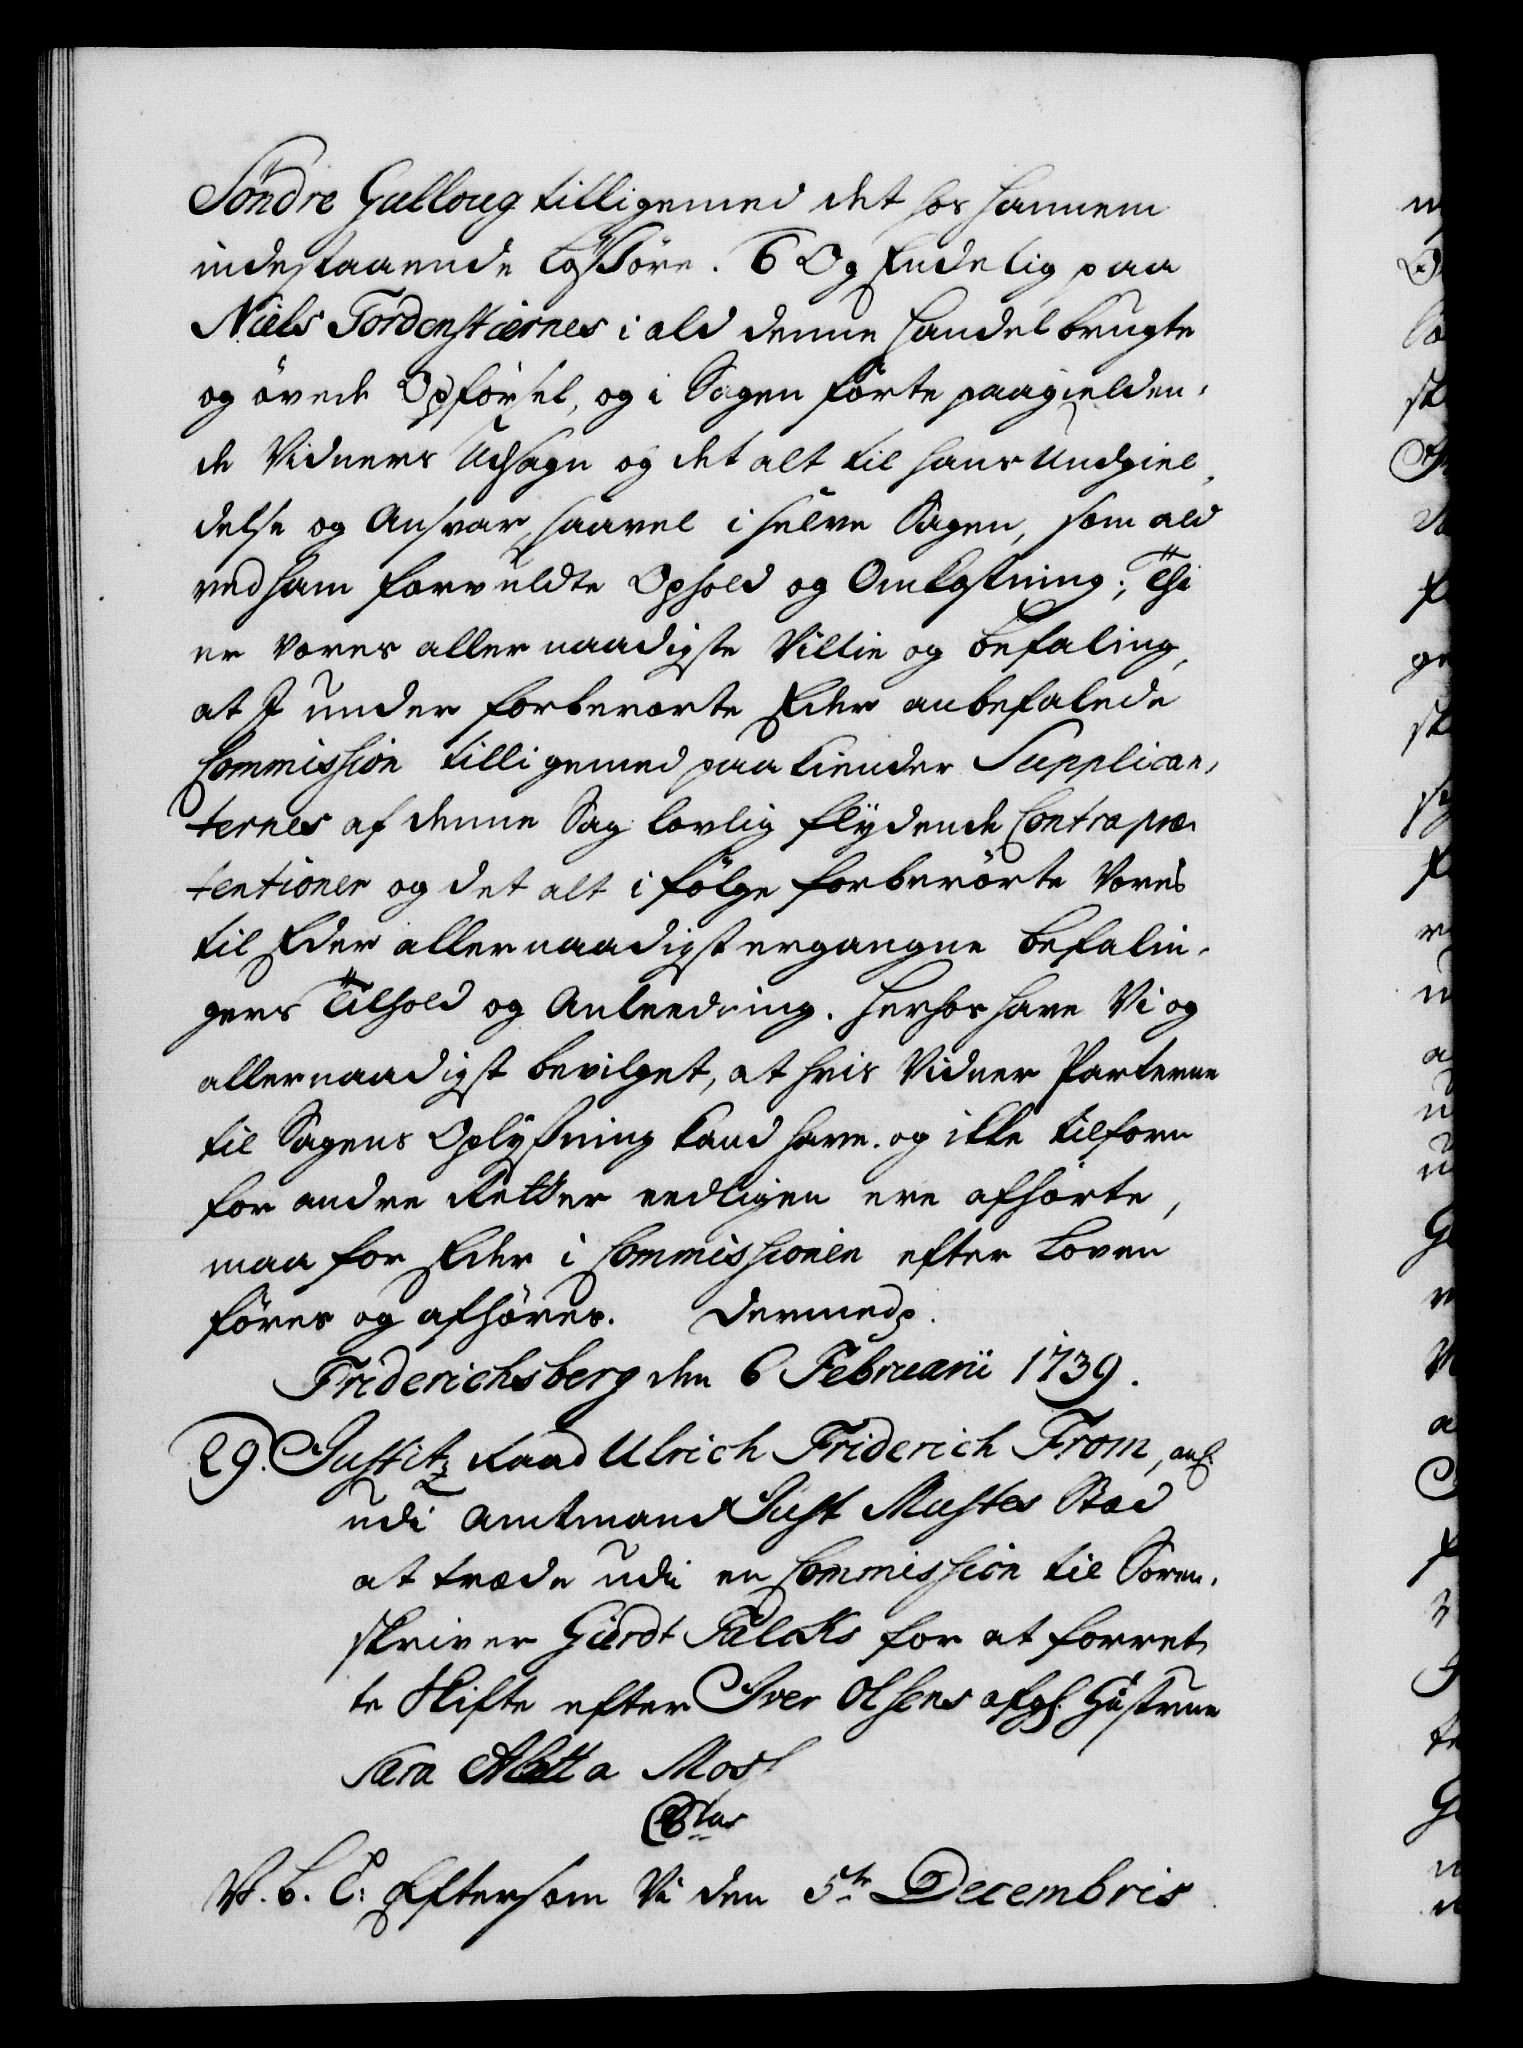 Söndre Gulloug tilligemed det hos hannem
indestaaende Løsøre. 6 Og Endelig paa
Niels Tordenstiernes i ald denne Handel brugte
og øvede Opførsel, og i Sagen førte paagielden,
de Vidners Udsagn og det alt til hans Undgiel,
delse og Ansvar, saavel i selve Sagen, som ald
ved ham forvoldte Ophold og Omkostning; Thi
er Vores allernaadigste Villie og Befaling,
at I under forberørte Eder anbefalede
Commission tilligemed paakiender Supplican,
ternes af denne Sag lovlig flydende Contrapræ,
tentioner og det alt i følge forberørte Vores
til Eder allernaadigst ergangne Befalin,
gers Tilhold og Anleedning. Herhos have Vi og
allernaadigst bevilget, at hvis Vidner Parterne
til Sagens Oplysning kand have. og ikke tilforn
for andre Retter eedligen ere afhørte,
maa for Eder i Commissionen efter Loven
føres og afhøres. Dermed.
Friderichsberg den 6 Februarii 1739.
29. Justitz Raad Ulrich Friderich From, anl.
udi Amtmand Just Mustes Stæd
at træde udi en Commission til Soren,
skriver Giært Falcks for at forret,
te Skifte efter Iver Olsens afg. Hustrue
Sara Aletta Moss
Str
V. G. T: Eftersom Vi den 5te Decembris